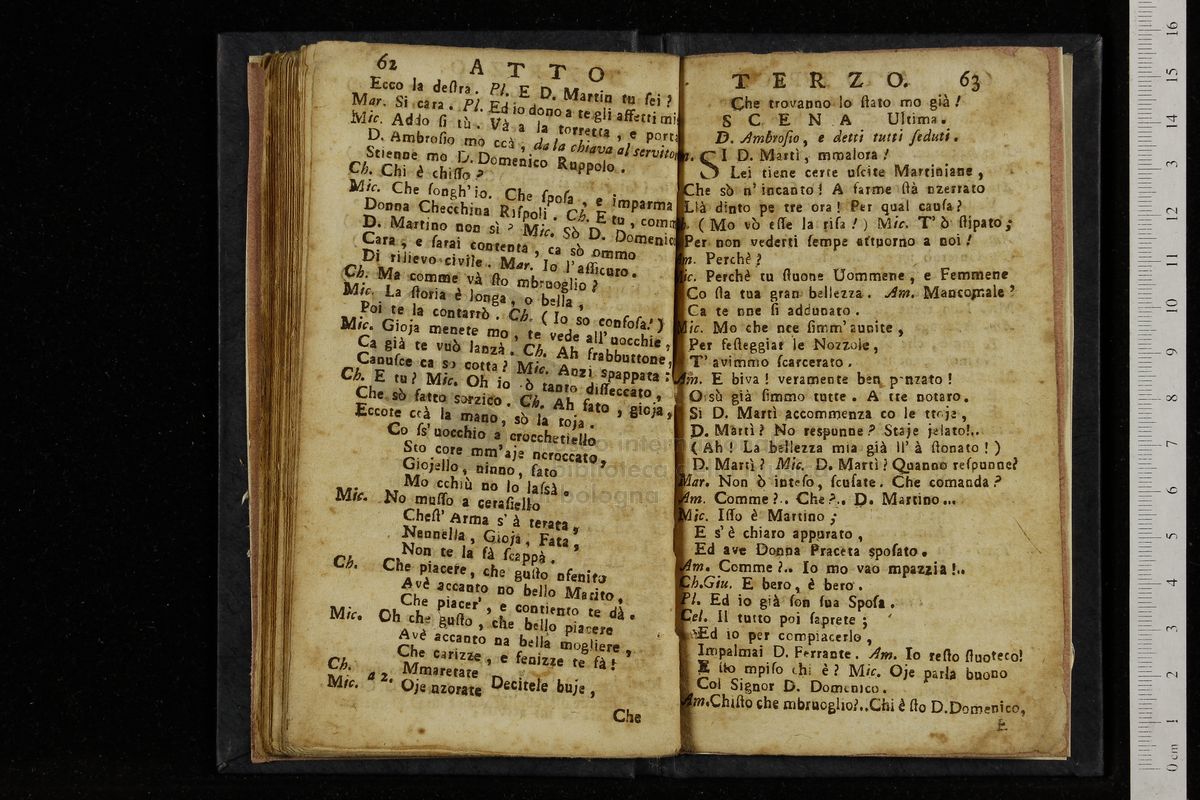 62 ATTO
Ecco la deſtra. Pl. E D. Martin tu ſei?
Mar. Sì cara. Pl. Ed io dono a te gli affetti
Mic. Addo ſi tù. Và a la torretta, e
D. Ambroſio mo ccà, da la chiava al
Stienne mo D. Domenico Ruppolo.
Ch. Chi è chiſſo?
Mic. Che ſongh'io. Che ſpoſa, e imparma
Donna Checchina Riſpoli. Ch. E tu,
D. Martino non sì? Mic. Sò D.
Cara, e ſarai contenta, ca sò ommo
Di rilievo civile. Mar. Io l'aſſicuro.
Ch. Ma comme và ſto mbruoglio?
Mic. La ſtoria è longa, o bella,
Poi te la contarrò. Ch. (Io so confoſa!)
Mic. Gioja menete mo, te vede all'uocchie,
Ca già te vuò lanzà. Ch. Ah frabbuttone,
Canuſce ca so cotta? Mic. Anzi spappata:
Ch. E tu? Mic. Oh io ò tanto diſſeccato,
Che sò fatto sorzico. Ch. Ah fato, gioja,
Eccote ccà la mano, sò la toja.
Co ſs'uocchio a crocchetiello
Sto core mm'aje ncroccato,
Giojello, ninno, fato
Mo cchiù no lo laſsà.
Mic. No muſſo a ceraſiello
Cheſt'Arma s'à terata,
Nennella, Gioja, Fata,
Non te la fà ſcappà.
Ch. Che piacere, che guſto nſenito
Avè accanto no bello Marito,
Che piacer', e contiento te dà.
Mic. Oh che guſto, che bello piacere
Avè accanto na bella mogliere,
Che carizze, e fenizze te fà!
Ch. Mmaretate
a 2. Decitele buje,
Mic. Oje nzorate
Che
TERZO. 63
Che trovanno lo ſtato mo già!
SCENA Ultima.
D. Ambroſio, e detti tutti ſeduti.
SI D. Martì, mmalora!
Lei tiene certe uſcite Martiniane,
Che sò n'incanto! A farme ſtà nzerrato
Llà dinto pe tre ora! Per qual cauſa?
(Mo vò eſſe la riſa!) Mic. T'ò ſtipato;
Per non vederti ſempe attuorno a noi!
Am. Perchè?
Mic. Perchè tu ſtuone Uommene, e Femmene
Co ſta tua gran bellezza. Am. Mancomale?
Ca te nne ſi addunato.
Mic. Mo che nce ſimm'aunite,
Per feſteggiar le Nozzole,
T'avimmo ſcarcerato.
Am. E biva! veramente ben penzato!
O sù già ſimmo tutte. A tte notaro.
Si D. Martì accommenza co le ttoje,
D. Martì? No reſpunne? Staje jelato!..
(Ah! La bellezza mia già ll'à ſtonato!)
D. Martì? Mic. D. Martì? Quanno reſpunne?
Mar. Non ò inteſo, ſcuſate. Che comanda?
Am. Comme?.. Che?.. D. Martino...
Mic. Iſſo è Martino;
E s'è chiaro appurato,
Ed ave Donna Praceta spoſato.
Am. Comme?.. Io mo vao mpazzia!..
Ch.Giu. E bero, è bero.
Pl. Ed io già ſon ſua Spoſa.
Cel. Il tutto poi ſaprete;
Ed io per compiacerlo,
Impalmai D. Ferrante. Am. Io reſto ſtuoteco!
E ſto mpiſo chi è? Mic. Oje parla buono
Col Signor D. Domenico.
Am. Chiſto che mbruoglio?.. Chi è ſto D. Domenico,
E